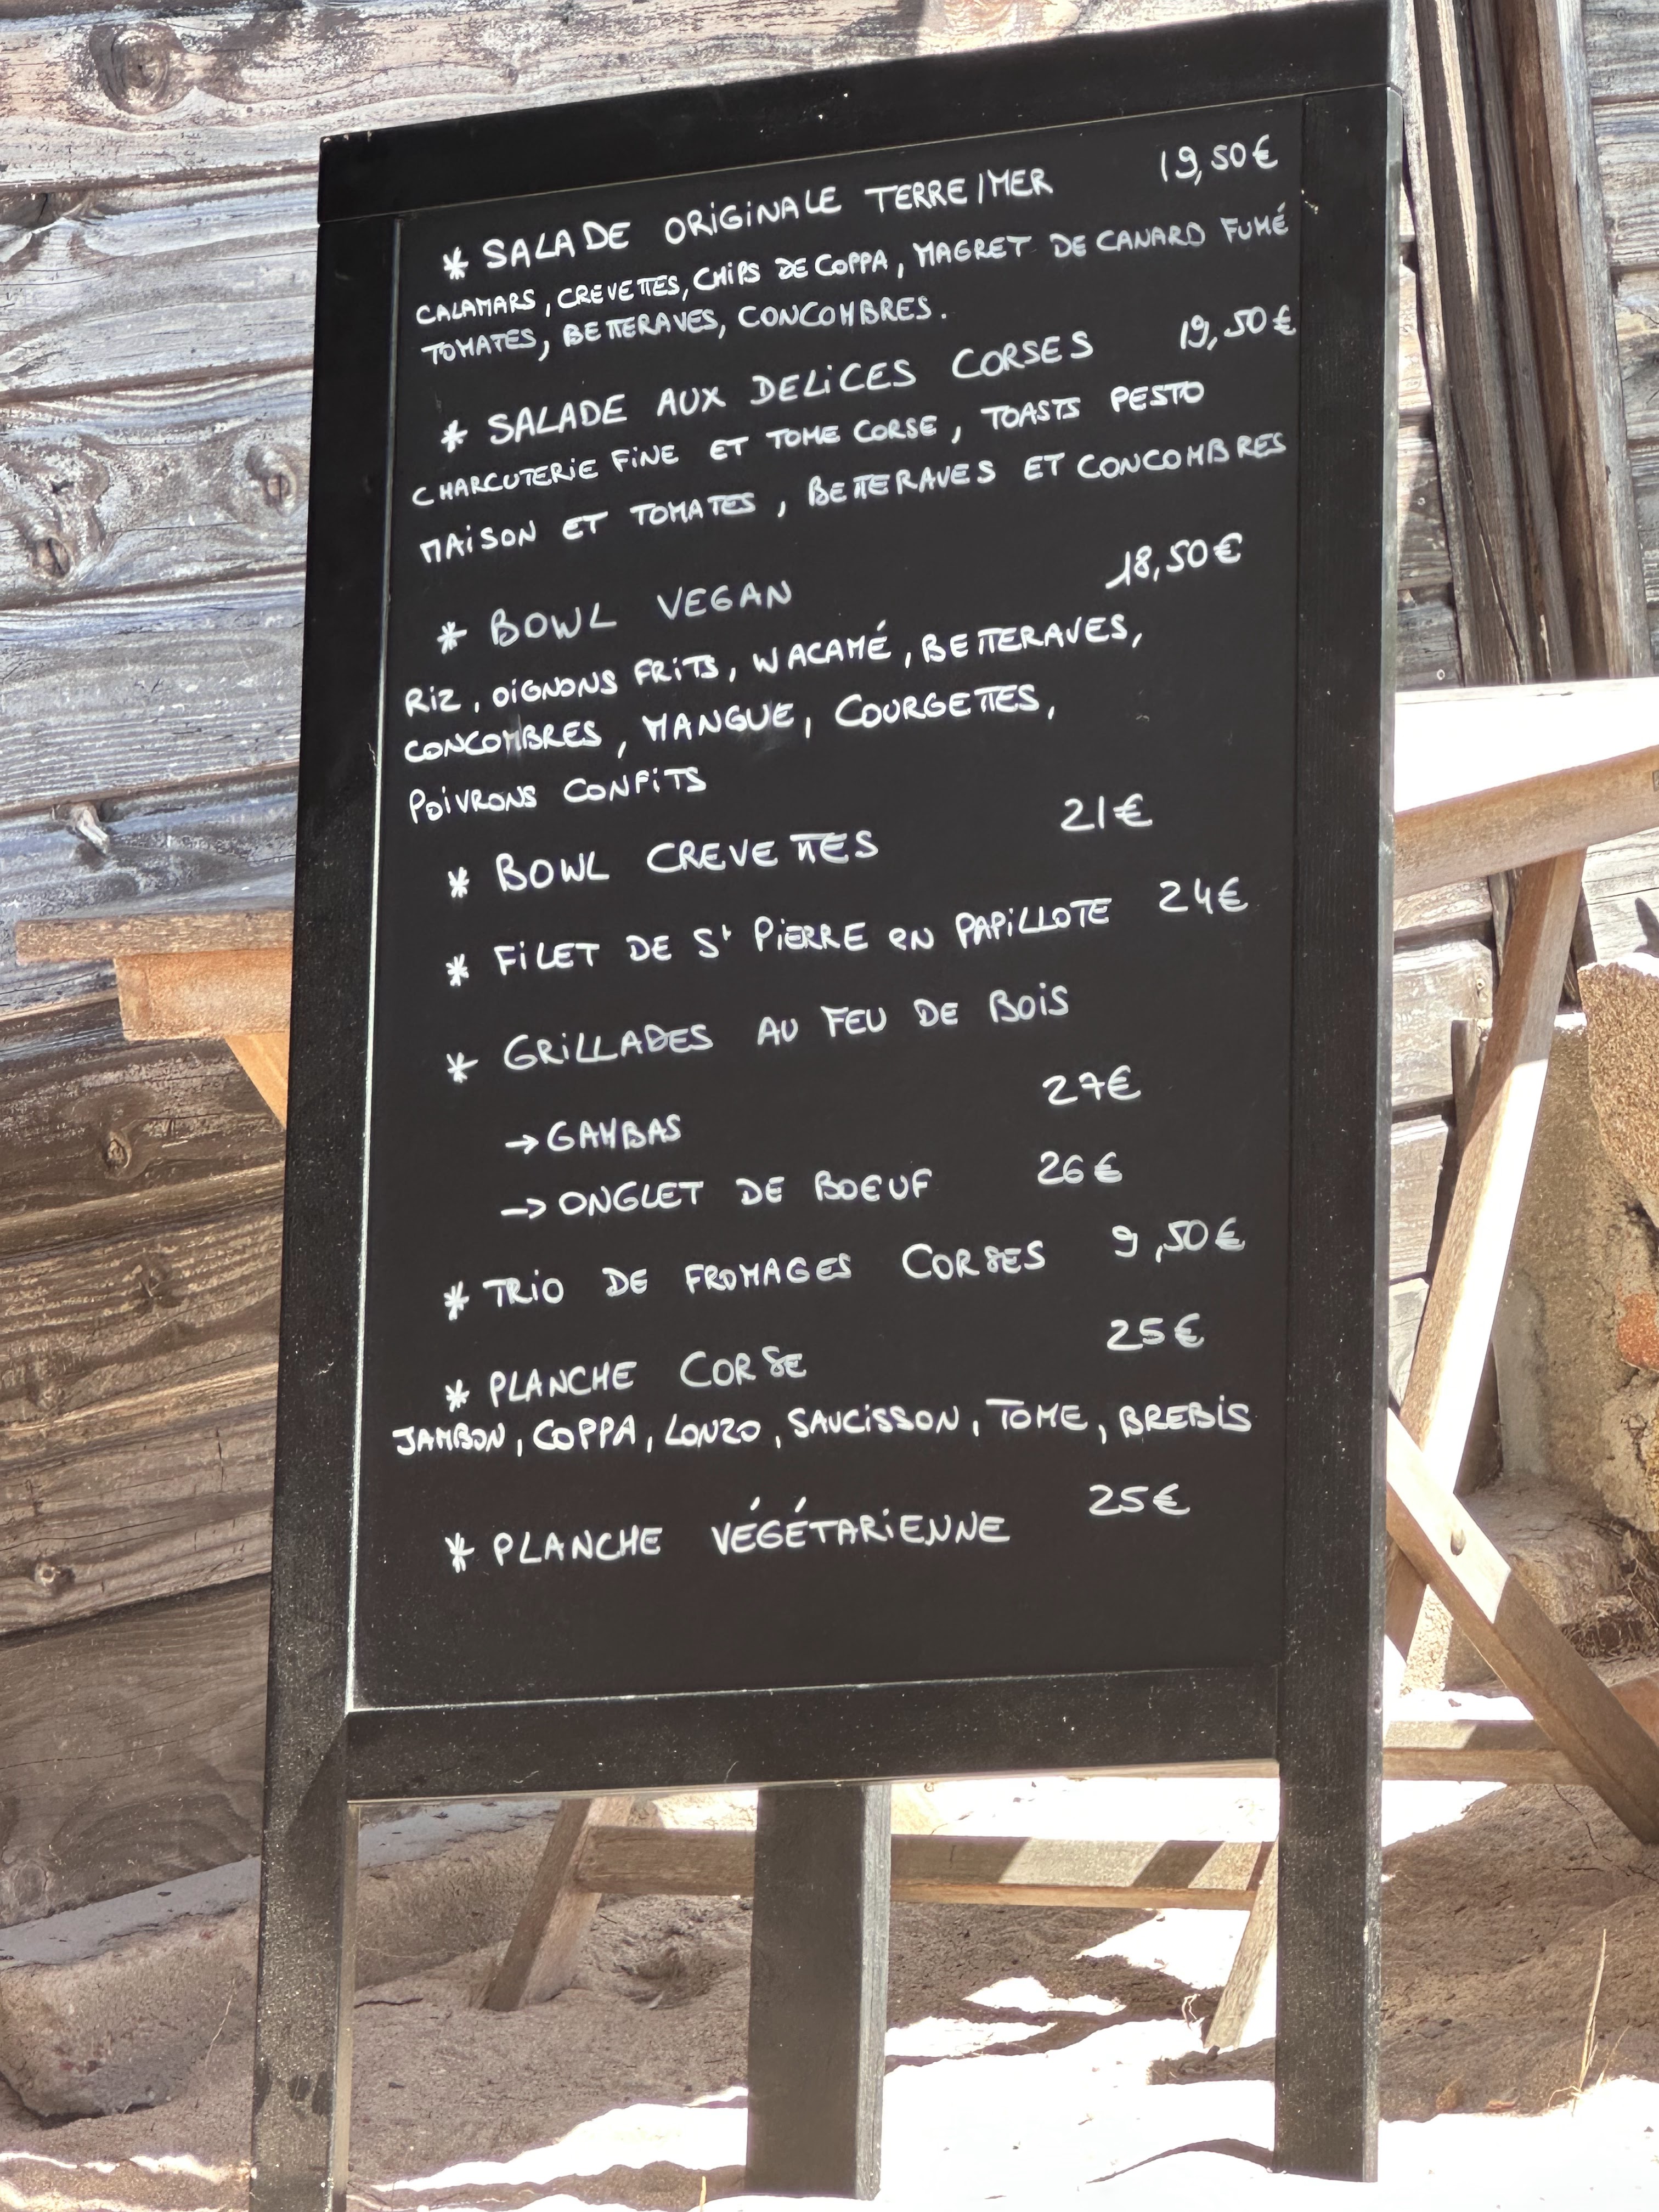 * SALADE ORIGINALE TERRE/MER 19,50€
CALAMARS, CREVETTES, CHIPS DE COPPA, MAGRET DE CANARD FUMÉ
TOMATES, BETTERAVES, CONCOMBRES.
* SALADE AUX DELICES CORSES 19,50€
CHARCUTERIE FINE ET TOME CORSE, TOASTS PESTO
MAISON ET TOMATES, BETTERAVES ET CONCOMBRES
* BOWL VEGAN 18,50€
RIZ, OIGNONS FRITS, WACAMÉ, BETTERAVES,
CONCOMBRES, MANGUE, COURGETTES,
POIVRONS CONFITS
* BOWL CREVETTES 21€
* FILET DE St PIERRE EN PAPILLOTE 24€
* GRILLADES AU FEU DE BOIS
→ GAMBAS 27€
→ ONGLET DE BOEUF 26€
* TRIO DE FROMAGES CORSES 9,50€
* PLANCHE CORSE 25€
JAMBON, COPPA, LONZO, SAUCISSON, TOME, BREBIS
* PLANCHE VÉGÉTARIENNE 25€